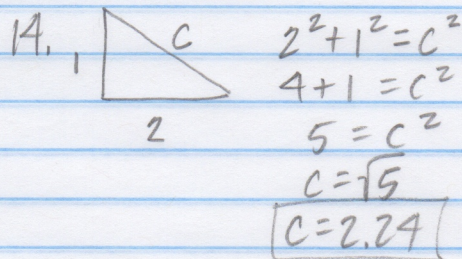 14.
1
c
2
2² + 1² = c²
4 + 1 = c²
5 = c²
c = √5
c = 2.24